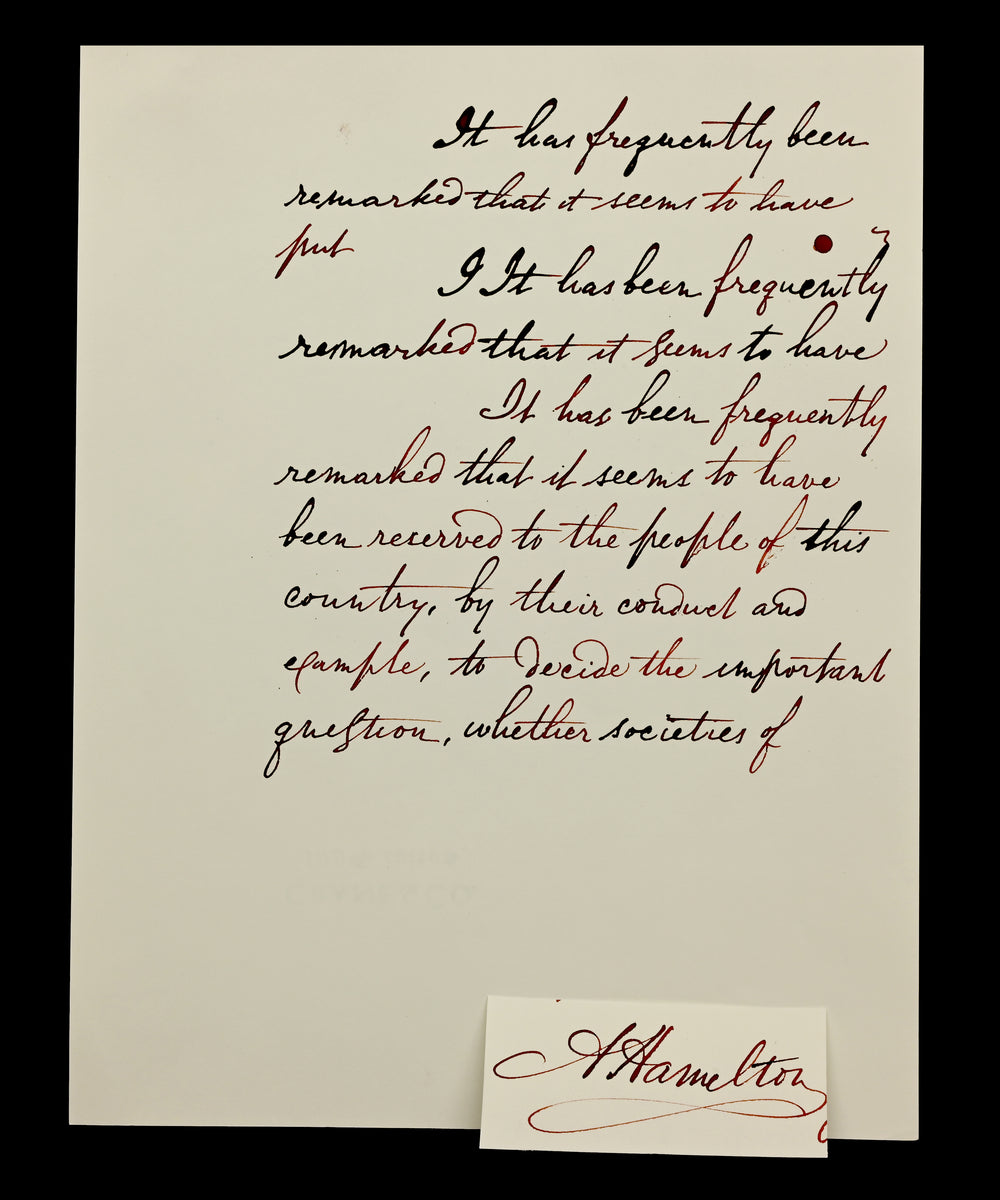 It has frequently been
remarked that it seems to have
put
I It has been frequently
remarked that it seems to have
It has been frequently
remarked that it seems to have
been reserved to the people of this
country, by their conduct and
example, to decide the important
question, whether societies of
A Hamilton